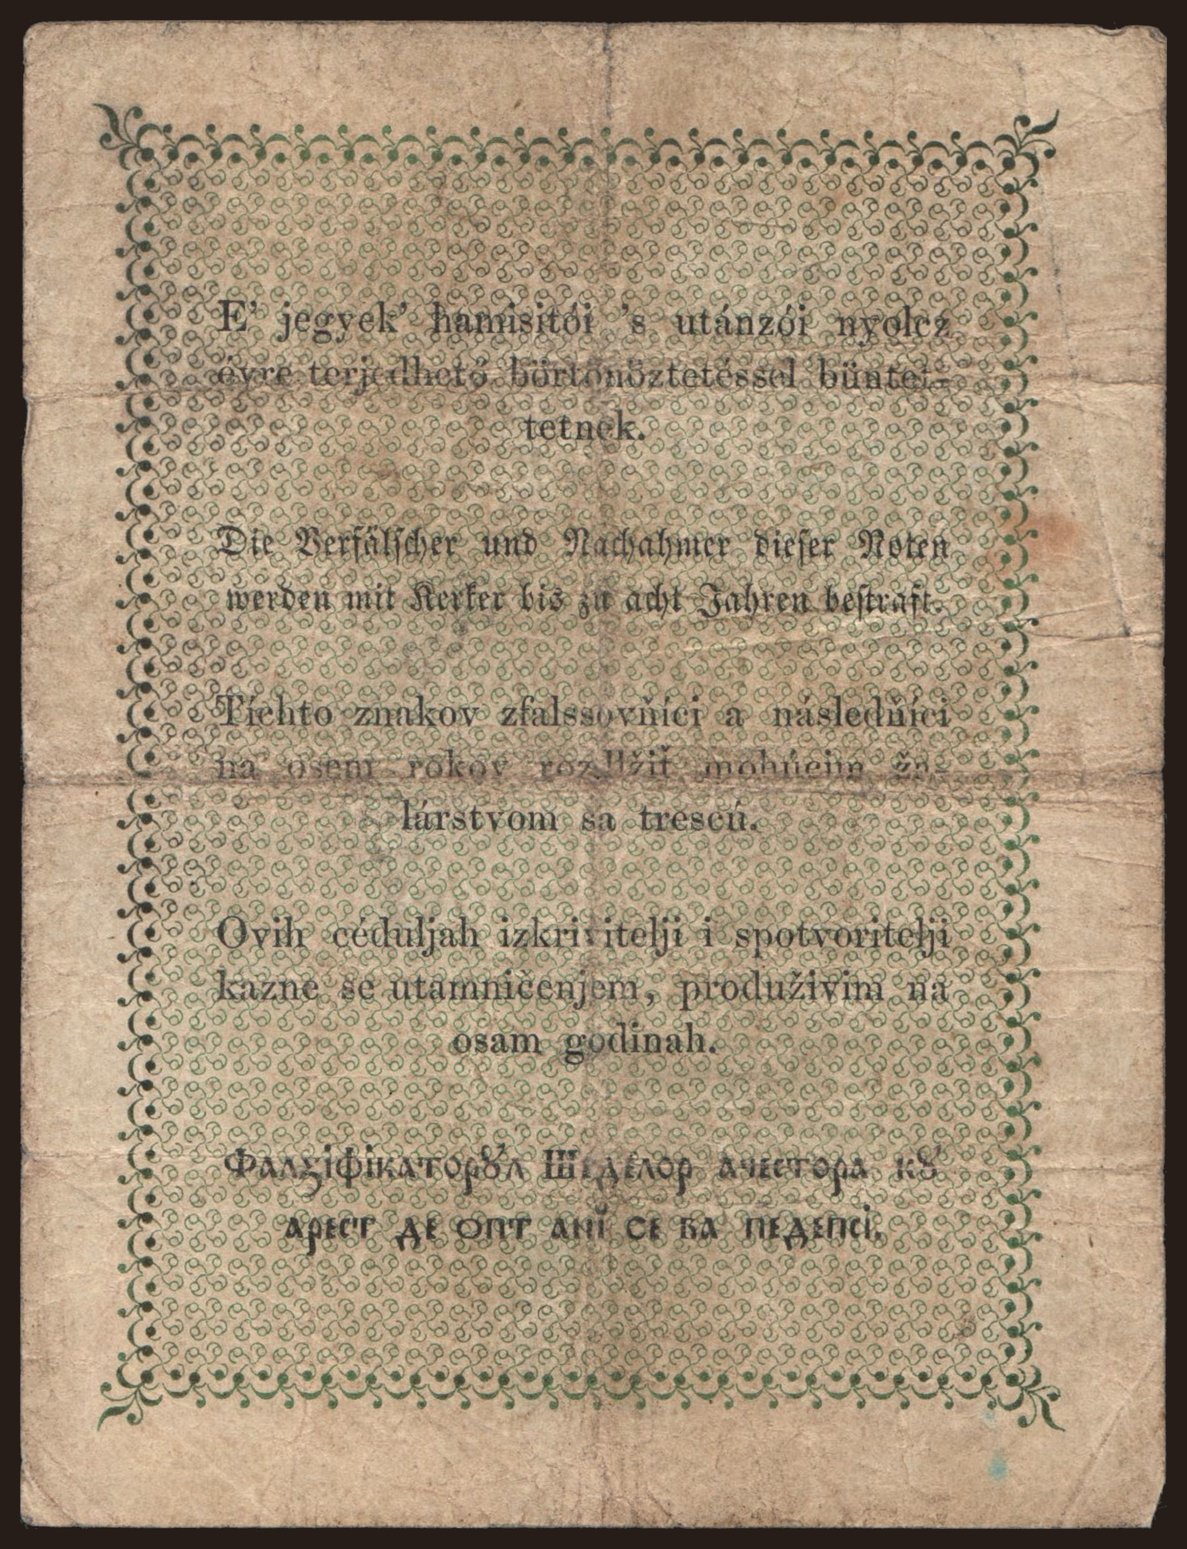 E' jegyek' hamisitói 's utánzói nyolcz
évre terjedhető börtönöztetéssel büntet-
tetnek.
Die Verfälscher und Nachahmer dieser Noten
werden mit Kerker bis zu acht Jahren bestraft.
Tíchto znakov zfalssovňíci a následňíci
na osem rokov rozdlžiť mohúcim ža-
lárstvom sa trescú.
Ovih céduljah izkrivitelji i spotvoritelji
kazne se utamničenjem, produživim na
osam godinah.
Фалꙁіфікаторꙋ́л Шеделор ачестора кꙋ
арест де опт анї се ва педепсі.